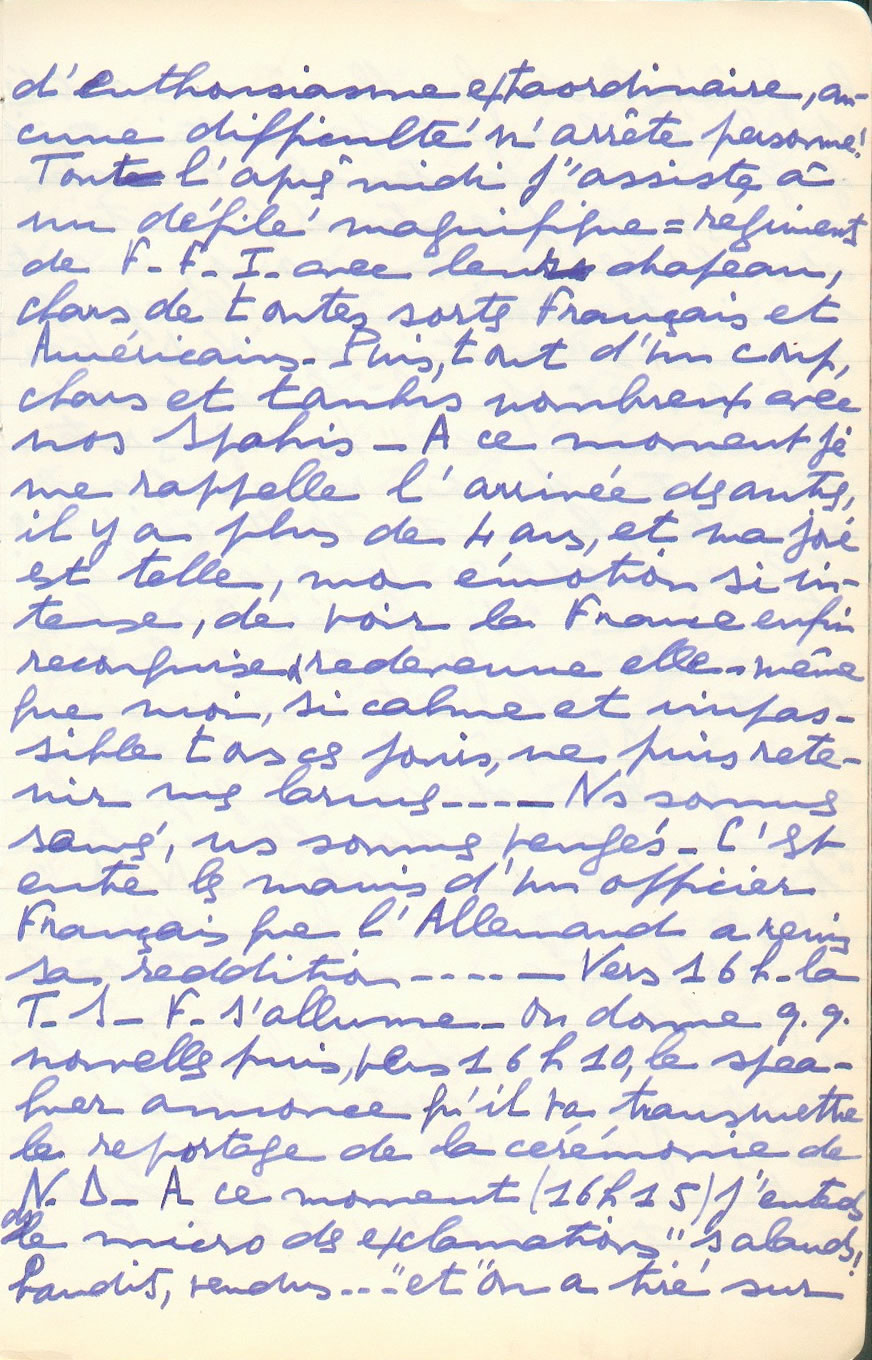 d'enthousiasme extraordinaire, au-
cune difficulté n'arrête personne!
Toute l'après midi j'assiste à
un défilé magnifique = régiments
de F.F.I. avec leurs drapeau,
chars de toutes sortes Français et
Américains. Puis, tout d'un coup,
chars et tanks nombreux avec
nos Spahis _ A ce moment je
me rappelle l'arrivée des autres,
il y a plus de 4 ans, et ma joie
est telle, mon émotion si in-
tense, de voir la France enfin
reconquise, redevenue elle-même
que moi, si calme et impas-
sible tous ces jours, ne puis rete-
nir mes larmes---- Ns sommes
sauvés, ns sommes vengés_ C'est
entre les mains d'un officier
Français que l'Allemand a remis
sa reddition----- Vers 16h. la
T.S.F. s'allume_ On donne q.q.
nouvelles puis, vers 16h10, le spea-
ker annonce qu'il va transmettre
le reportage de la cérémonie de
N.D_ A ce moment (16h15) j'entends
ds le micro des exclamations "salauds!
bandits, vendus..." et "on a tiré sur